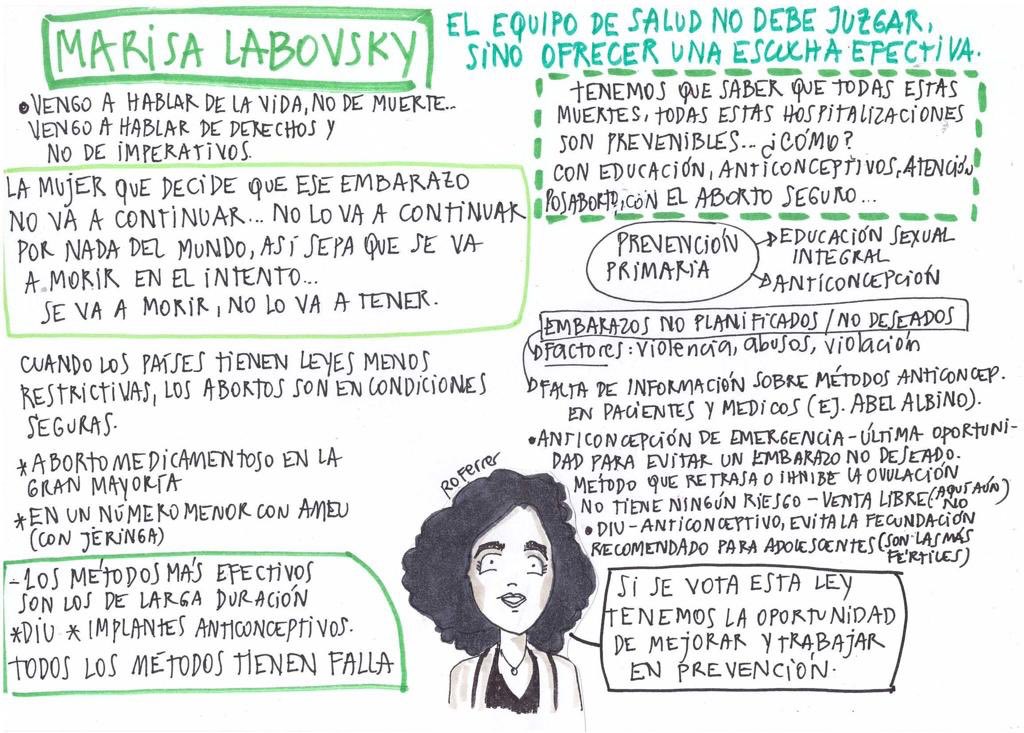 MARISA LABOVSKY
EL EQUIPO DE SALUD NO DEBE JUZGAR,
SINO OFRECER UNA ESCUCHA EFECTIVA.
• VENGO A HABLAR DE LA VIDA, NO DE MUERTE...
VENGO A HABLAR DE DERECHOS Y
NO DE IMPERATIVOS.
LA MUJER QUE DECIDE QUE ESE EMBARAZO
NO VA A CONTINUAR... NO LO VA A CONTINUAR
POR NADA DEL MUNDO, ASÍ SEPA QUE SE VA
A MORIR EN EL INTENTO...
SE VA A MORIR, NO LO VA A TENER.
CUANDO LOS PAÍSES TIENEN LEYES MENOS
RESTRICTIVAS, LOS ABORTOS SON EN CONDICIONES
SEGURAS.
* ABORTO MEDICAMENTOSO EN LA
GRAN MAYORÍA
* EN UN NÚMERO MENOR CON AMEU
(CON JERINGA)
- LOS MÉTODOS MÁS EFECTIVOS
SON LOS DE LARGA DURACIÓN
* DIU * IMPLANTES ANTICONCEPTIVOS.
TODOS LOS MÉTODOS TIENEN FALLA
TENEMOS QUE SABER QUE TODAS ESTAS
MUERTES, TODAS ESTAS HOSPITALIZACIONES
SON PREVENIBLES... ¿CÓMO?
CON EDUCACIÓN, ANTICONCEPTIVOS, ATENCIÓN
POSABORTO, CON EL ABORTO SEGURO...
PREVENCIÓN
PRIMARIA
EDUCACIÓN SEXUAL
INTEGRAL
ANTICONCEPCIÓN
EMBARAZOS NO PLANIFICADOS / NO DESEADOS
FACTORES: VIOLENCIA, ABUSOS, VIOLACIÓN
FALTA DE INFORMACIÓN SOBRE MÉTODOS ANTICONCEP.
EN PACIENTES Y MEDICOS (EJ. ABEL ALBINO).
• ANTICONCEPCIÓN DE EMERGENCIA - ÚLTIMA OPORTUNI-
DAD PARA EVITAR UN EMBARAZO NO DESEADO.
MÉTODO QUE RETRASA O INHIBE LA OVULACIÓN
NO TIENE NINGÚN RIESGO - VENTA LIBRE (AQUÍ AÚN NO)
• DIU - ANTICONCEPTIVO, EVITA LA FECUNDACIÓN
RECOMENDADO PARA ADOLESCENTES (SON LAS MÁS
FÉRTILES)
RO FERRER
SI SE VOTA ESTA LEY
TENEMOS LA OPORTUNIDAD
DE MEJORAR Y TRABAJAR
EN PREVENCIÓN.